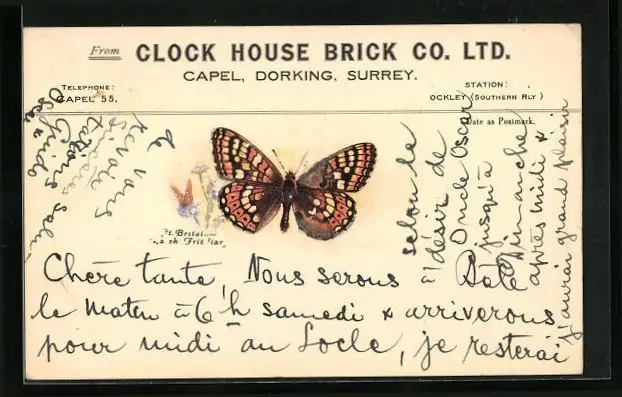 From CLOCK HOUSE BRICK CO. LTD.
CAPEL, DORKING, SURREY.
TELEPHONE:
CAPEL 55.
STATION:
OCKLEY (SOUTHERN RLY)
Date as Postmark.
Chère tante, Nous serons à Bâle
le matin à 6 h samedi & arriverons
pour midi au Locle, je resterai
selon le
désir de
Oncle Oscar
jusqu'à
Dimanche
après midi &
j'aurai grand plaisir
de vous
revoir
Guido